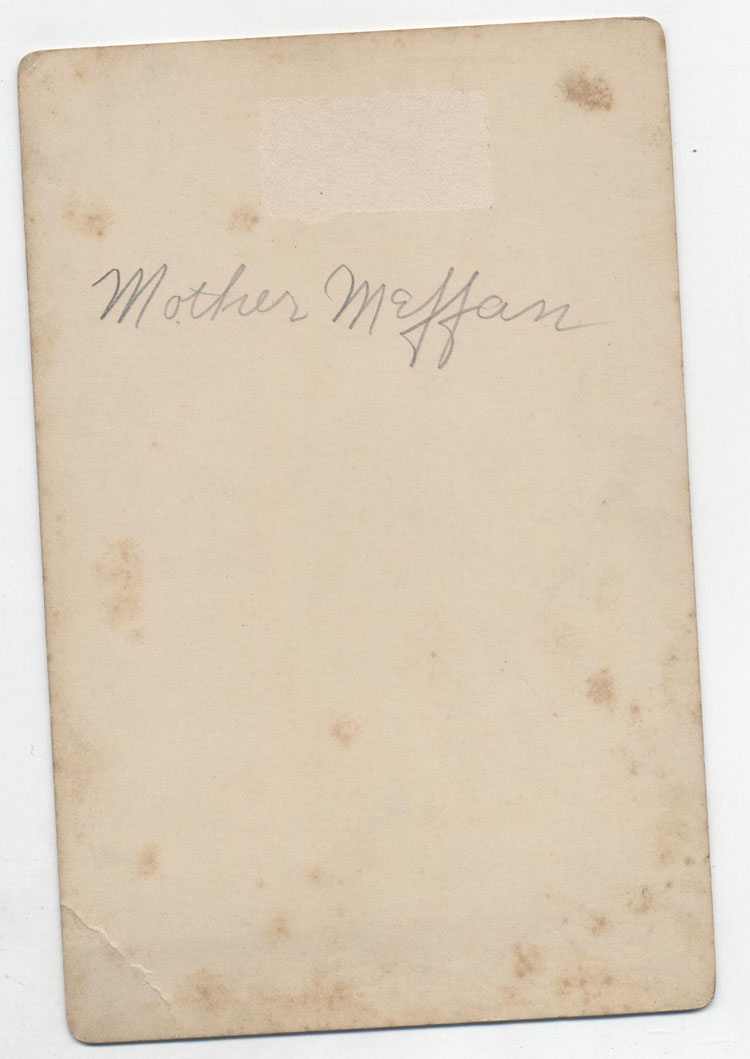 Mother Meffan